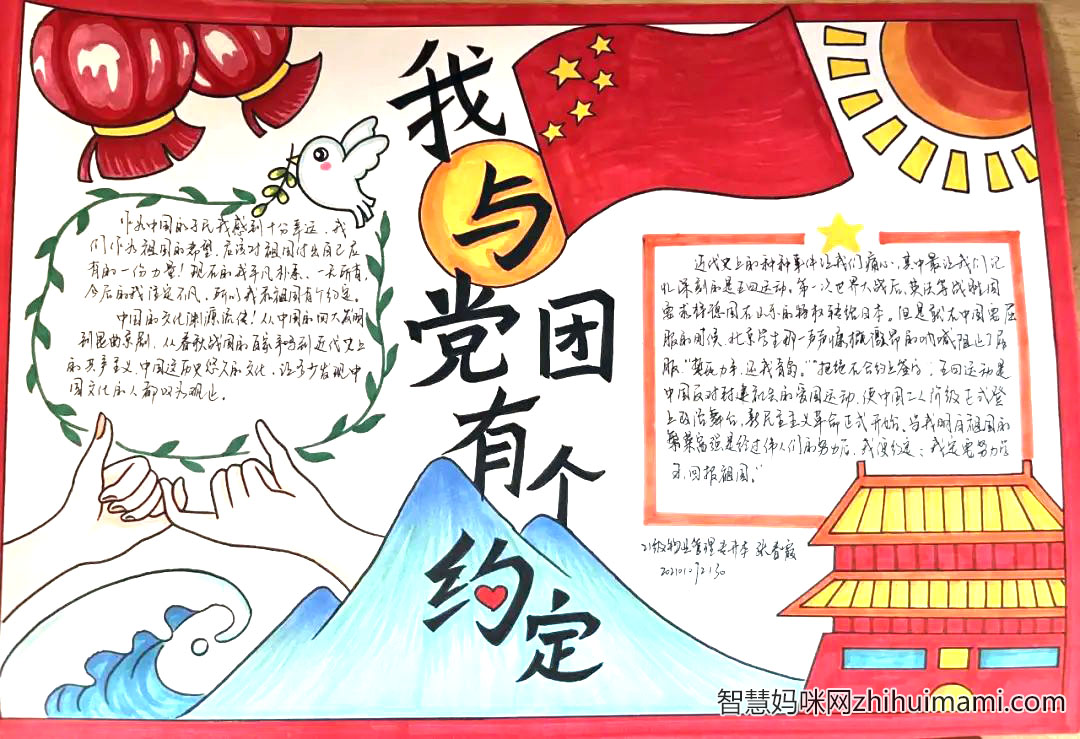 我与党团有个约定
作为中国的子民我感到十分幸运、我
们作为祖国的希望、应该对祖国付出自己应
有的一份力量！现在的我平凡朴素、一无所有,
今后的我活定不凡，所以我和祖国有个约定。
中国的文化渊源流传！从中国的四大发明
到昆曲京剧、从春秋战国的百家争鸣到近代史上
的共产主义、中国这历史悠久的文化，让多少发现中
国文化的人都叹为观止。
近代史上的种种事件让我们痛心、其中最让我们记
忆深刻的是五四运动。第一次世界大战后、英法等战胜国
要求将德国在山东的特权转给日本。但是就在中国要屈
服的时候、北京学生那一声声痛彻激昂的呐喊阻止了屈
服"誓死力争、还我青岛。""拒绝在合约上签约、五四运动是
中国反对封建社会的爱国运动、使中国工人阶级正式登
上政治舞台、新民主主义革命正式开始。当我明白祖国的
繁荣富强是经过伟人们的努力后、我便约定：我定要努力学
习回报祖国。"
21级物业管理专升本 张香霞
智慧妈咪网zhihuimami.com